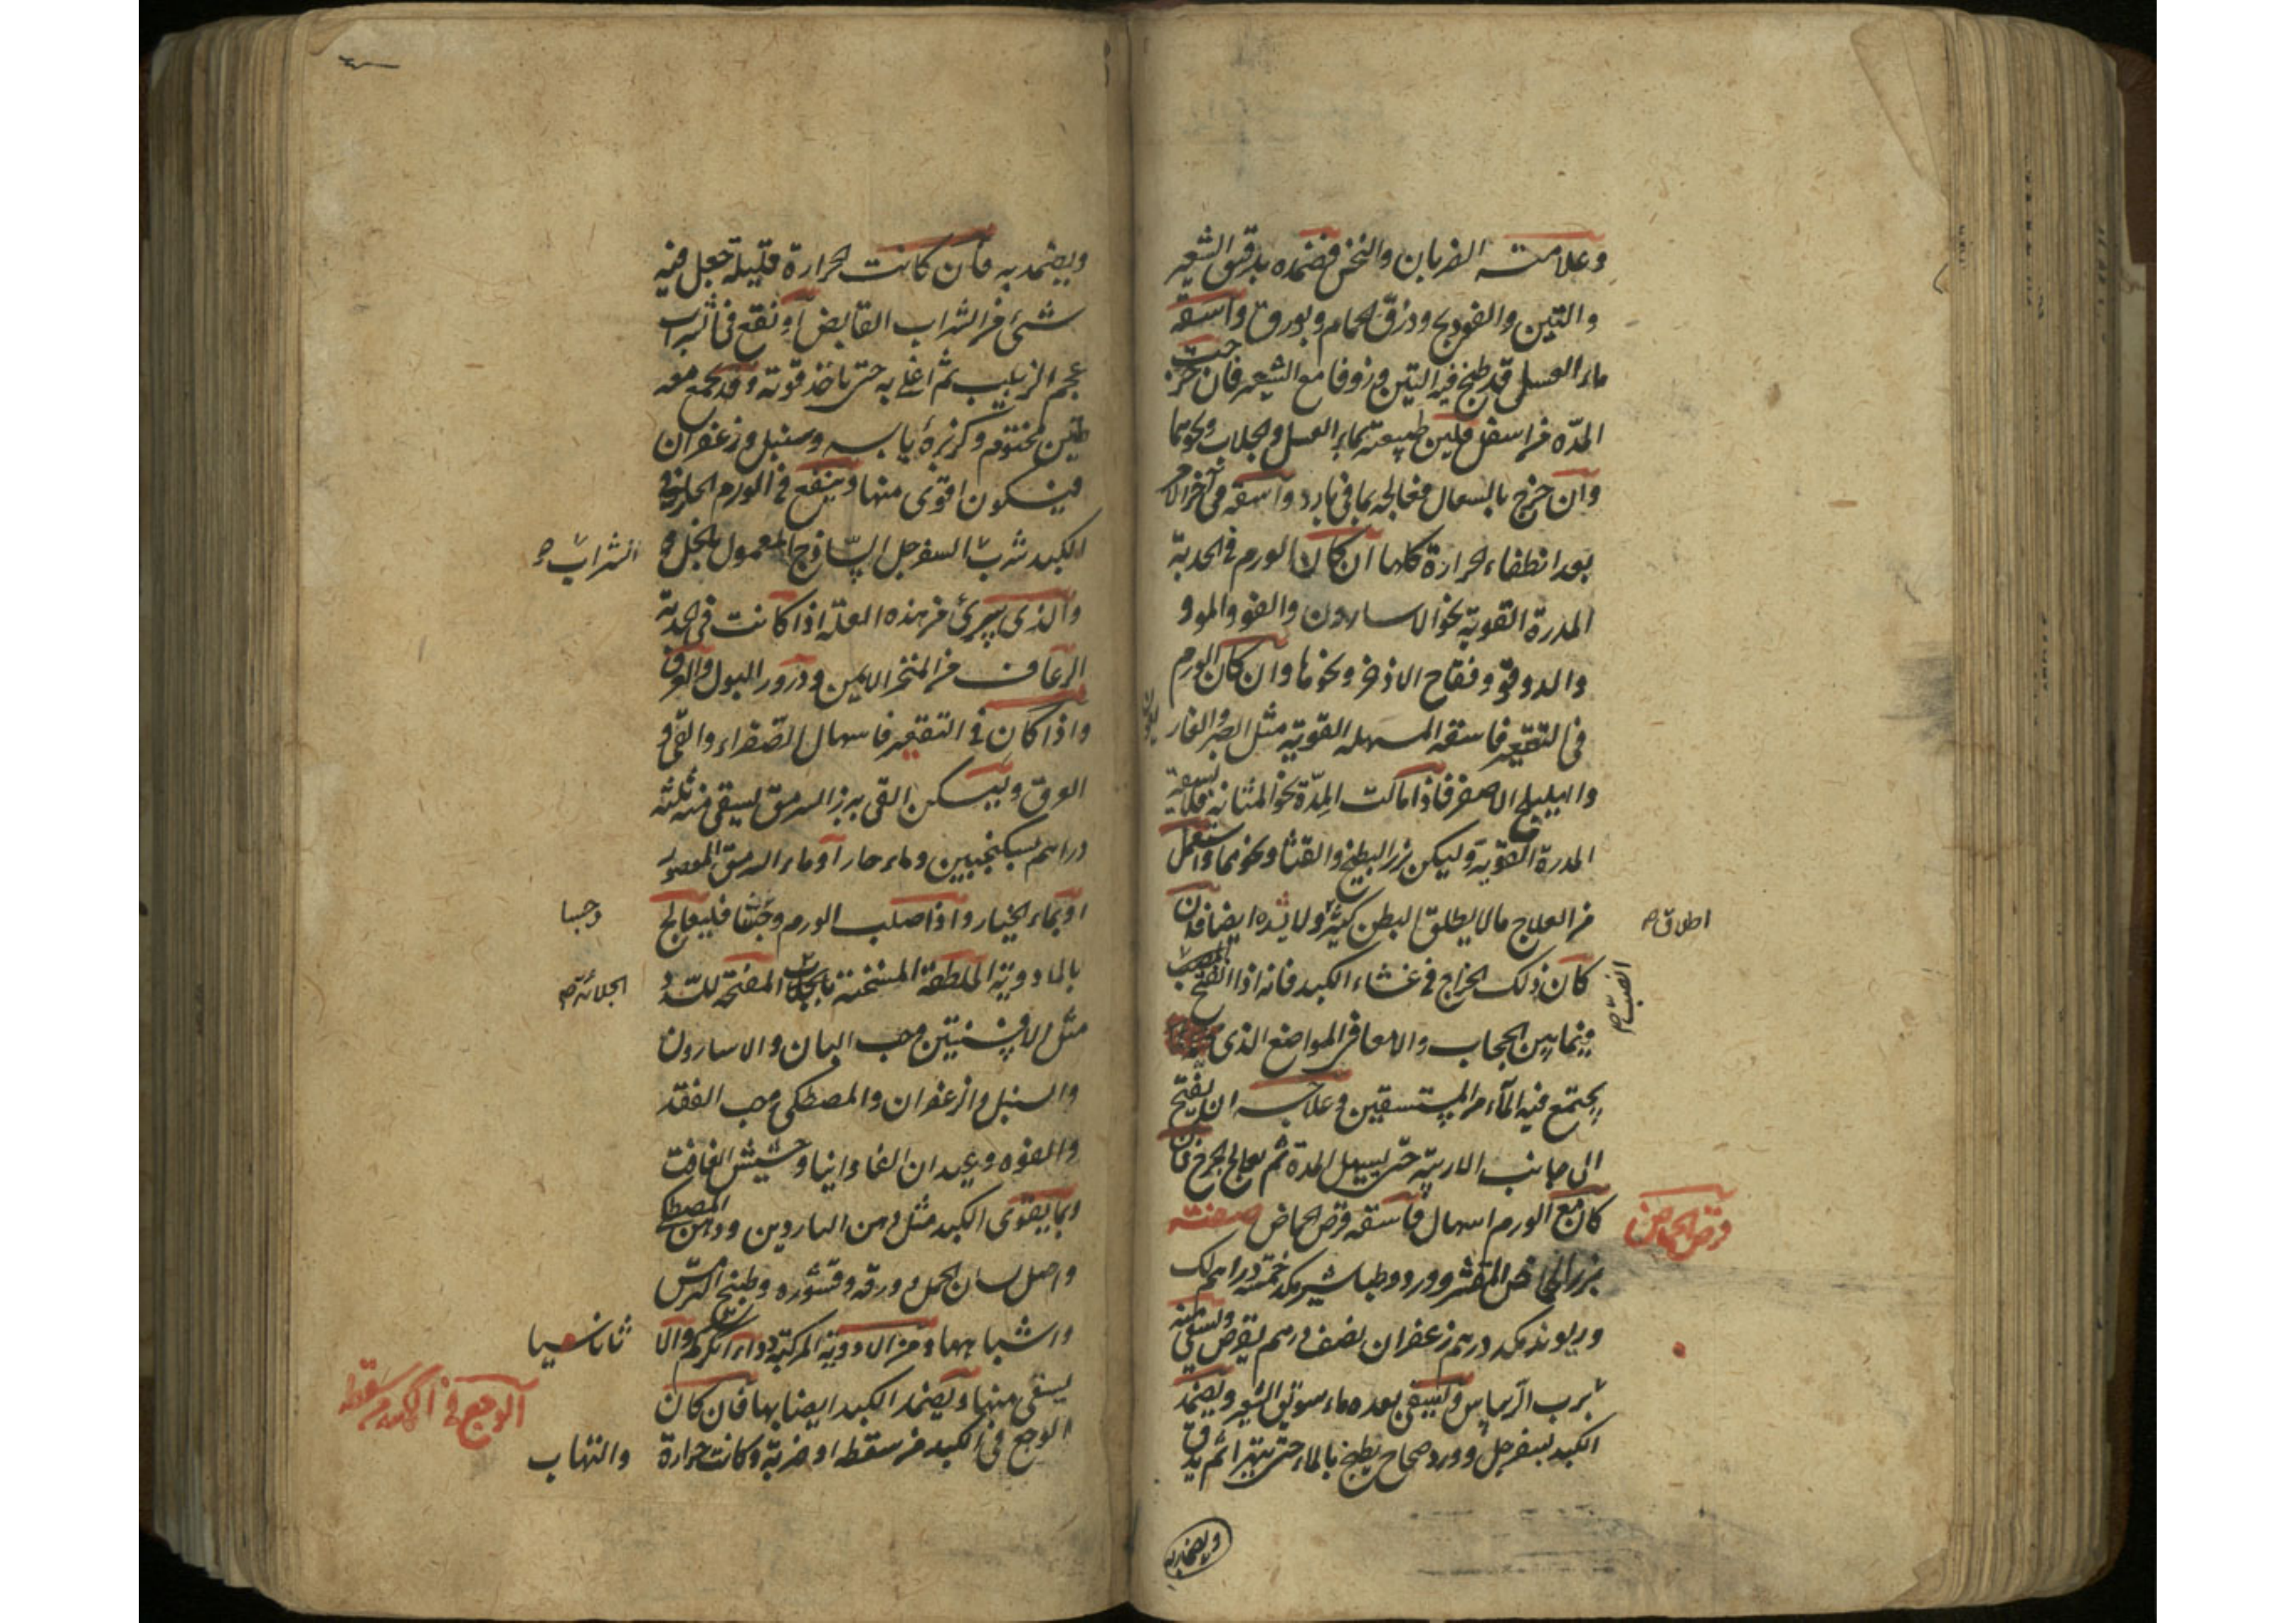 وعلامته الضربان والنخس فضمده بدقيق الشعير
والتين والفوذنج وذرق الحمام وبورق واسقه
ماء العسل قد طبخ فيه التين وزوفا مع الشعير فان خرجت
المدّه من اسفل فلين طبيعته بماء العسل والجلاب ونحوهما
وان خرج بالسعال فعالجه بما في بابه واسقه في آخر الامر
بعد انطفاء الحرارة كلها ان كان الورم في الحدبة
المدرة القوية نحو الاسارون والفو والمو و
والدوقو وفقاح الاذخر ونحوها وان كان الورم
في التقعير فاسقه المسهله القوية مثل الصبر والغاريقون
والهليلج الاصفر فاذا مالت المِدّة نحو المثانة فلا تسقه
المدرة القوية وليكن بزر البطيخ والقثا ونحوهما واستعمل
من العلاج ما لا يطلق البطن كثيرا ولا يشده ايضا فان
اطلاق صح
كان ذلك الخراج في غشاء الكبد فانه اذا انفتح انصب
انصبّ صح
فيما بين الحجاب والامعا في المواضع الذى
يجتمع فيه الماء من المستسقين وعلاجه ان يفتح
الى جانب الاربيّه حتى يسيل المدة ثم يعالج الجرح فان
كان مع الورم اسهال فاسقه قرص الحماض صفته
قرص الحماض
بزر الحماض المقشر وورد وطباشير مكد خمسة دراهم لك
وريوند مكد درهم زعفران نصف درهم يقرص ويسقى منه
برب الريباس ويسقى بعده ماء سويق الشعير ويضمد
الكبد بسفرجل وورد صحاح يطبخ بالماء حتى يتهرا ثم يدق
ويضمد به
ويضمد به فان كانت الحرارة قليلة جعل فيه
شئ من الشراب القابض او نقع في الشراب
عجم الزبيب ثم اغلي به حتى ياخذ قوته وقد يجمع معه
طين مختوم وكزبرة يابسه وسنبل وزعفران
فيكون اقوى منها وينفع في الورم الحار في
الكبد شرب السفرجل الساذج المعمول بالخل و
الشراب صح
والذى يبرئ من هذه العلة اذا كانت في الحدبة
الرعاف من المنخر الايمن ودرور البول والعرق
واذا كان في التقعير فاسهال الصفراء والقي و
العرق ويسكن القي ببزر السرمق يسقى منه ثلثة
دراهم بسكنجبين وماء حار او ماء السرمق المعصور
او بماء الخيار واذا صلب الورم وجشا فليعالج
وجسا
بالادوية الملطفة المسخنة بالجلاب المفتحة للسدد
الجلائه صح
مثل الافسنتين وحب البان والاسارون
والسنبل والزعفران والمصطكى وحب الفقد
والفوه وعيدان الفاوانيا وحشيش الغافت
وبما يقوى الكبد مثل دهن الناردين ودهن المصطكى
واصل لسان الحمل وورقه وقشوره وطبيخ الترمس
واشباهها ومن الادوية المركبة دواء الكركم والا
ثاناسيا
يسقى منها ويضمد الكبد ايضا بها فان كان
الوجع في الكبد من سقطه
الوجع في الكبد من سقطه او ضربة وكانت حرارة
والتهاب